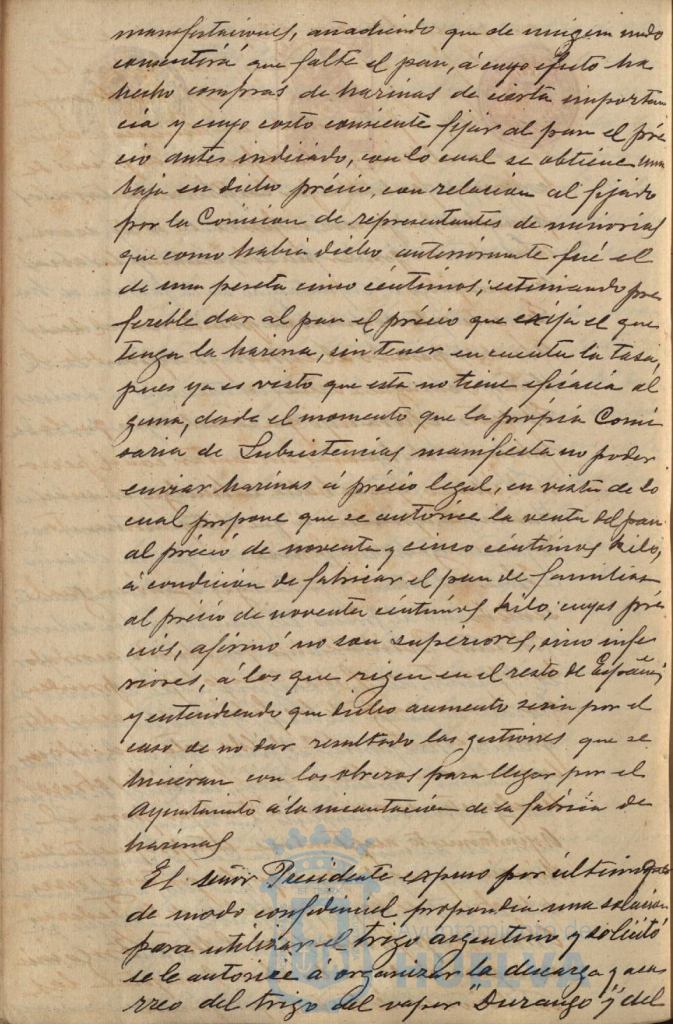 manifestaciones, añadiendo que de ningun modo
consentirá que falte el pan, á cuyo efecto ha
hecho compras de harinas de cierta importan
cia y cuyo costo consiente fijar al pan el pré
cio antes indicado, con lo cual se obtiene una
baja en dicho précio, con relacion al fijado
por la Comision de representantes de minorias
que como habia dicho anteriormente fué el
de una peseta cinco céntimos; estimando pre
ferible dar al pan el précio que exija el que
tenga la harina, sin tener en cuenta la tasa,
pues ya es visto que esta no tiene eficácia al
guna, desde el momento que la própia Comi
saria de Subsistencias manifiesta no poder
enviar harinas á précio legal, en vista de lo
cual propone que se autorice la venta del pan
al précio de noventa y cinco céntimos kilo,
á condicion de fabricar el pan de familias
al précio de noventa céntimos kilo; cuyos pré
cios, afirmó no son superiores, sino infe
riores, á los que rigen en el resto de España;
y entendiendo que dicho aumento seria por el
caso de no dar resultado las gestiones que se
hicieran con los obreros para llegar por el
Ayuntamiento á la incautacion de la fábrica de
harinas
El señor Presidente expuso por último que
de modo confidencial propondria una solucion
para utilizar el trigo argentino y solicitó
se le autorice á organizar la descarga y aca
rreo del trigo del vapor "Durango" y del
Ayuntamiento de
HUELVA